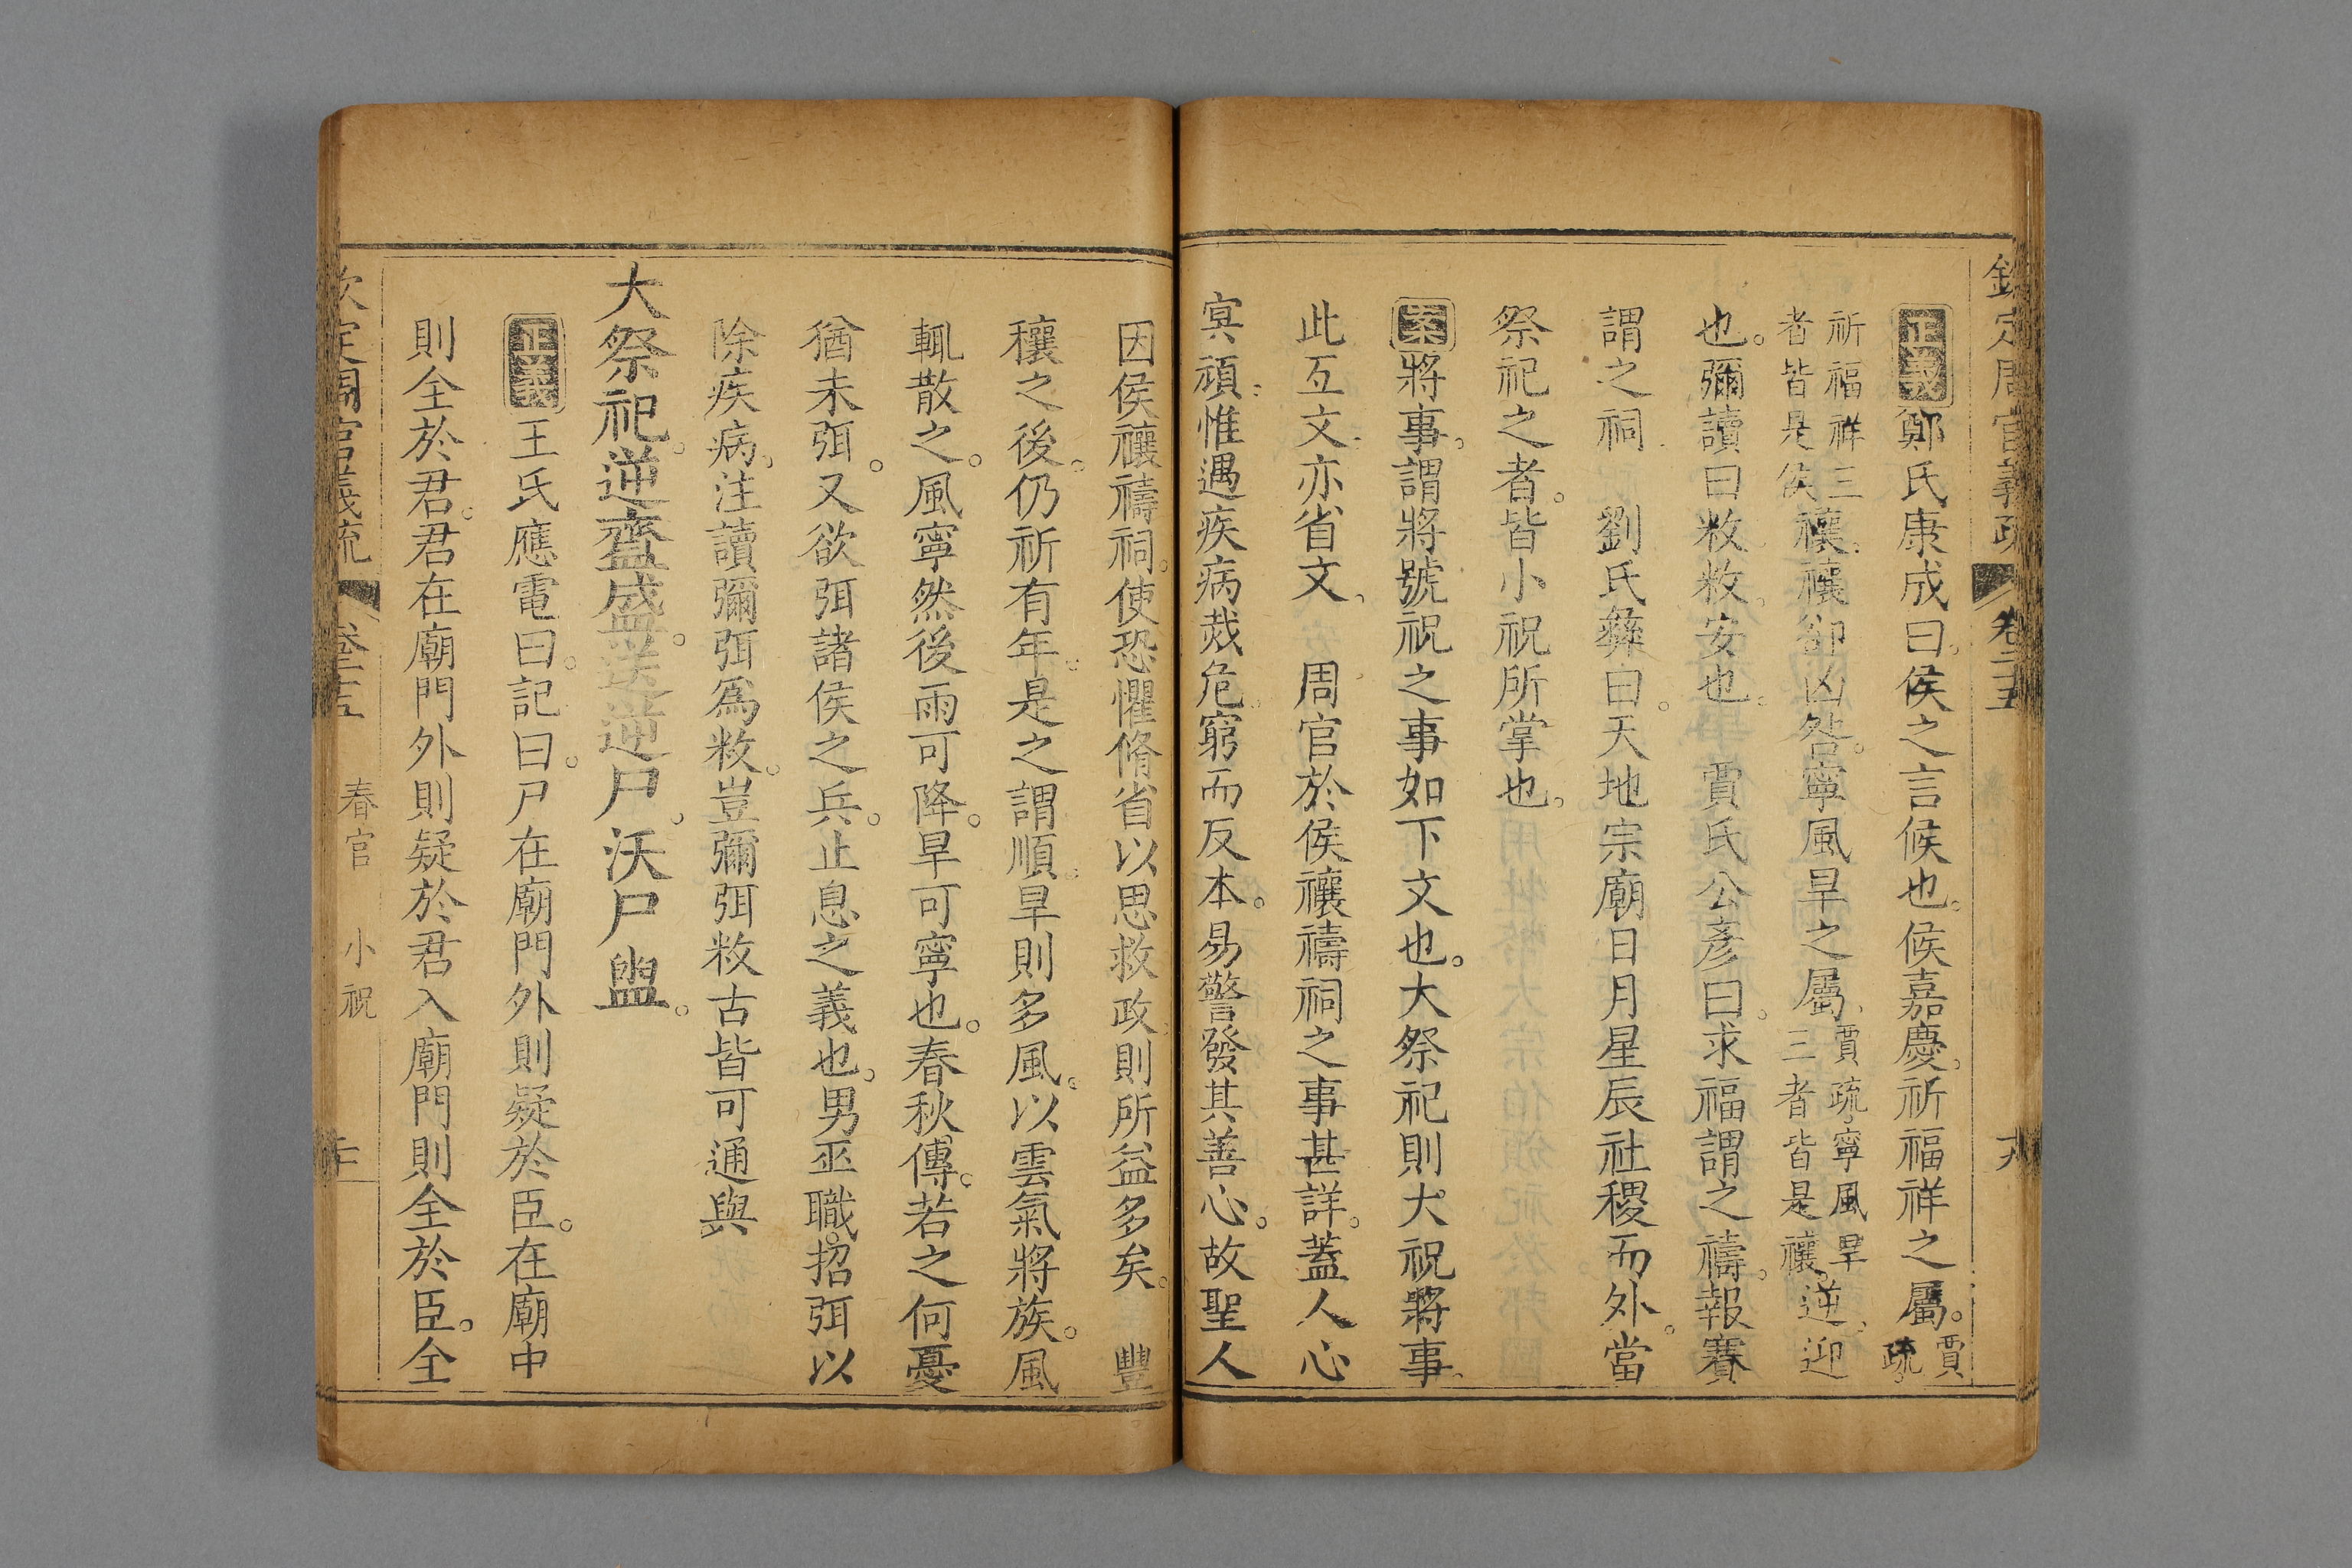 欽定周官義疏 卷二十五
正義鄭氏康成曰。侯之言候也。候嘉慶。祈福祥之屬。賈疏。
祈福祥三者皆是侯禳。禳卻凶咎。寧風旱之屬。賈疏。寧風旱三者皆是禳。逆。迎
也。彌讀曰敉。敉。安也。 賈氏公彥曰。求福謂之禱。報賽
謂之祠。 劉氏彝曰。天地宗廟日月星辰社稷而外。當
祭祀之者。皆小祝所掌也。
案將事。謂將號祝之事如下文也。大祭祀則大祝將事。
此互文。亦省文。 周官於侯禳禱祠之事甚詳。蓋人心
冥頑。惟遇疾病烖危。窮而反本。易警發其善心。故聖人
因侯禳禱祠。使恐懼脩省以思救政。則所益多矣。 豐
穰之後。仍祈有年。是之謂順。旱則多風。以雲氣將族。風
輒散之。風寧然後雨可降。旱可寧也。春秋傳。若之何憂
猶未弭。又欲弭諸侯之兵。止息之義也。男巫職。招弭以
除疾病。注讀彌弭爲敉。豈彌弭敉古皆可通與
大祭祀。逆齍盛。送逆尸。沃尸盥。
正義王氏應電曰。記曰。尸在廟門外則疑於臣。在廟中
則全於君。君在廟門外則疑於君。入廟門則全於臣。全
欽定周官義疏 卷二十五 春官 小祝